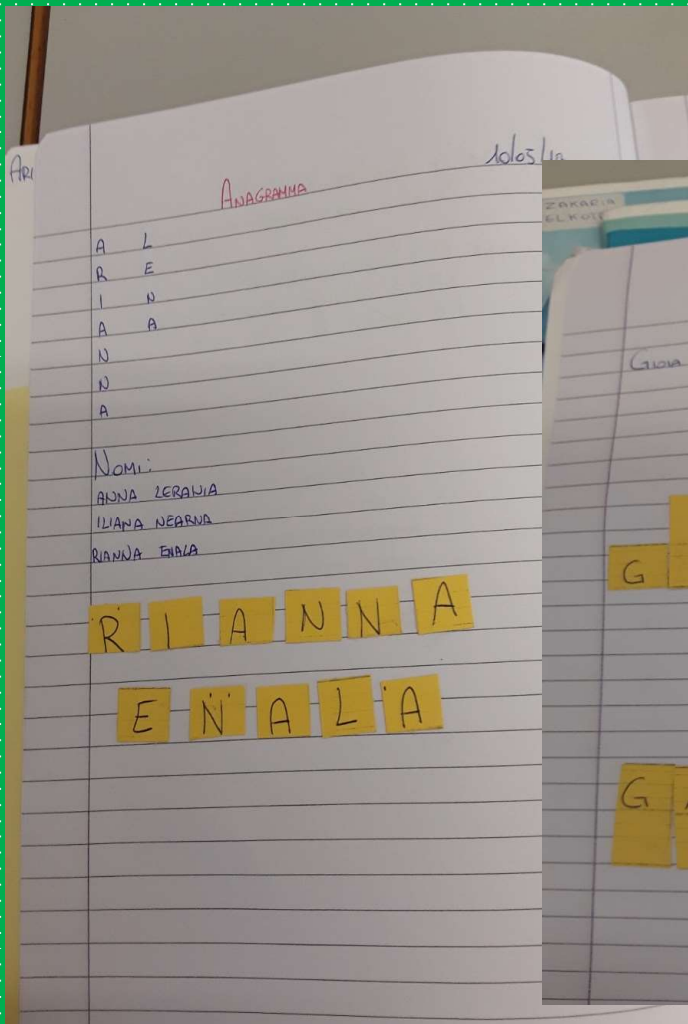 ANAGRAMMA
A L
R E
I N
A A
N
N
A
NOMI:
ANNA LERANIA
ILIANA NEARNA
RIANNA ENALA
R I A N N A
E N A L A
ZAKARIA
G
G